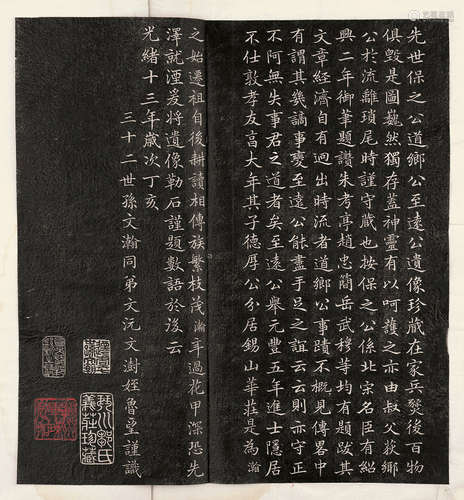 先世保之公道鄉公至遠公遺像珍藏在家兵燹後百物
俱毀是圖巍然獨存蓋神靈有以呵護之亦由叔父荻鄉
公於流離瑣尾時謹守藏也按保之公係北宋名臣有紹
興二年御筆題讚朱考亭趙忠簡岳武穆等均有題跋其
文章經濟自有迥出時流者道鄉公事蹟不概見傳畧中
有謂其幾譌事變至遠公能盡手足之誼云云則亦守正
不阿無失事君之道者矣至遠公舉元豐五年進士隱居
不仕敦孝友富大年其子德厚公分居錫山華莊是為瀚
之始遷祖自後耕讀相傳族繁枝茂瀚年過花甲深恐先
澤就湮爰將遺像勒石謹題數語於後云
光緒十三年歲次丁亥
三十二世孫文瀚同弟文沅文澍姪魯謹識
鄒氏
義莊珍藏